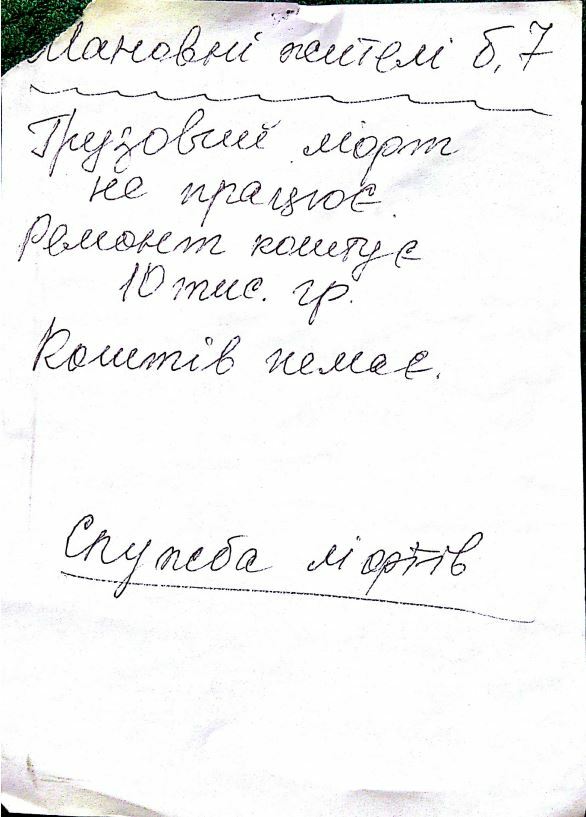 Шановні жителі б, 7
Грузовий ліфт
не працює.
Ремонт коштує
10 тис. гр.
Коштів немає.
Служба ліфтів